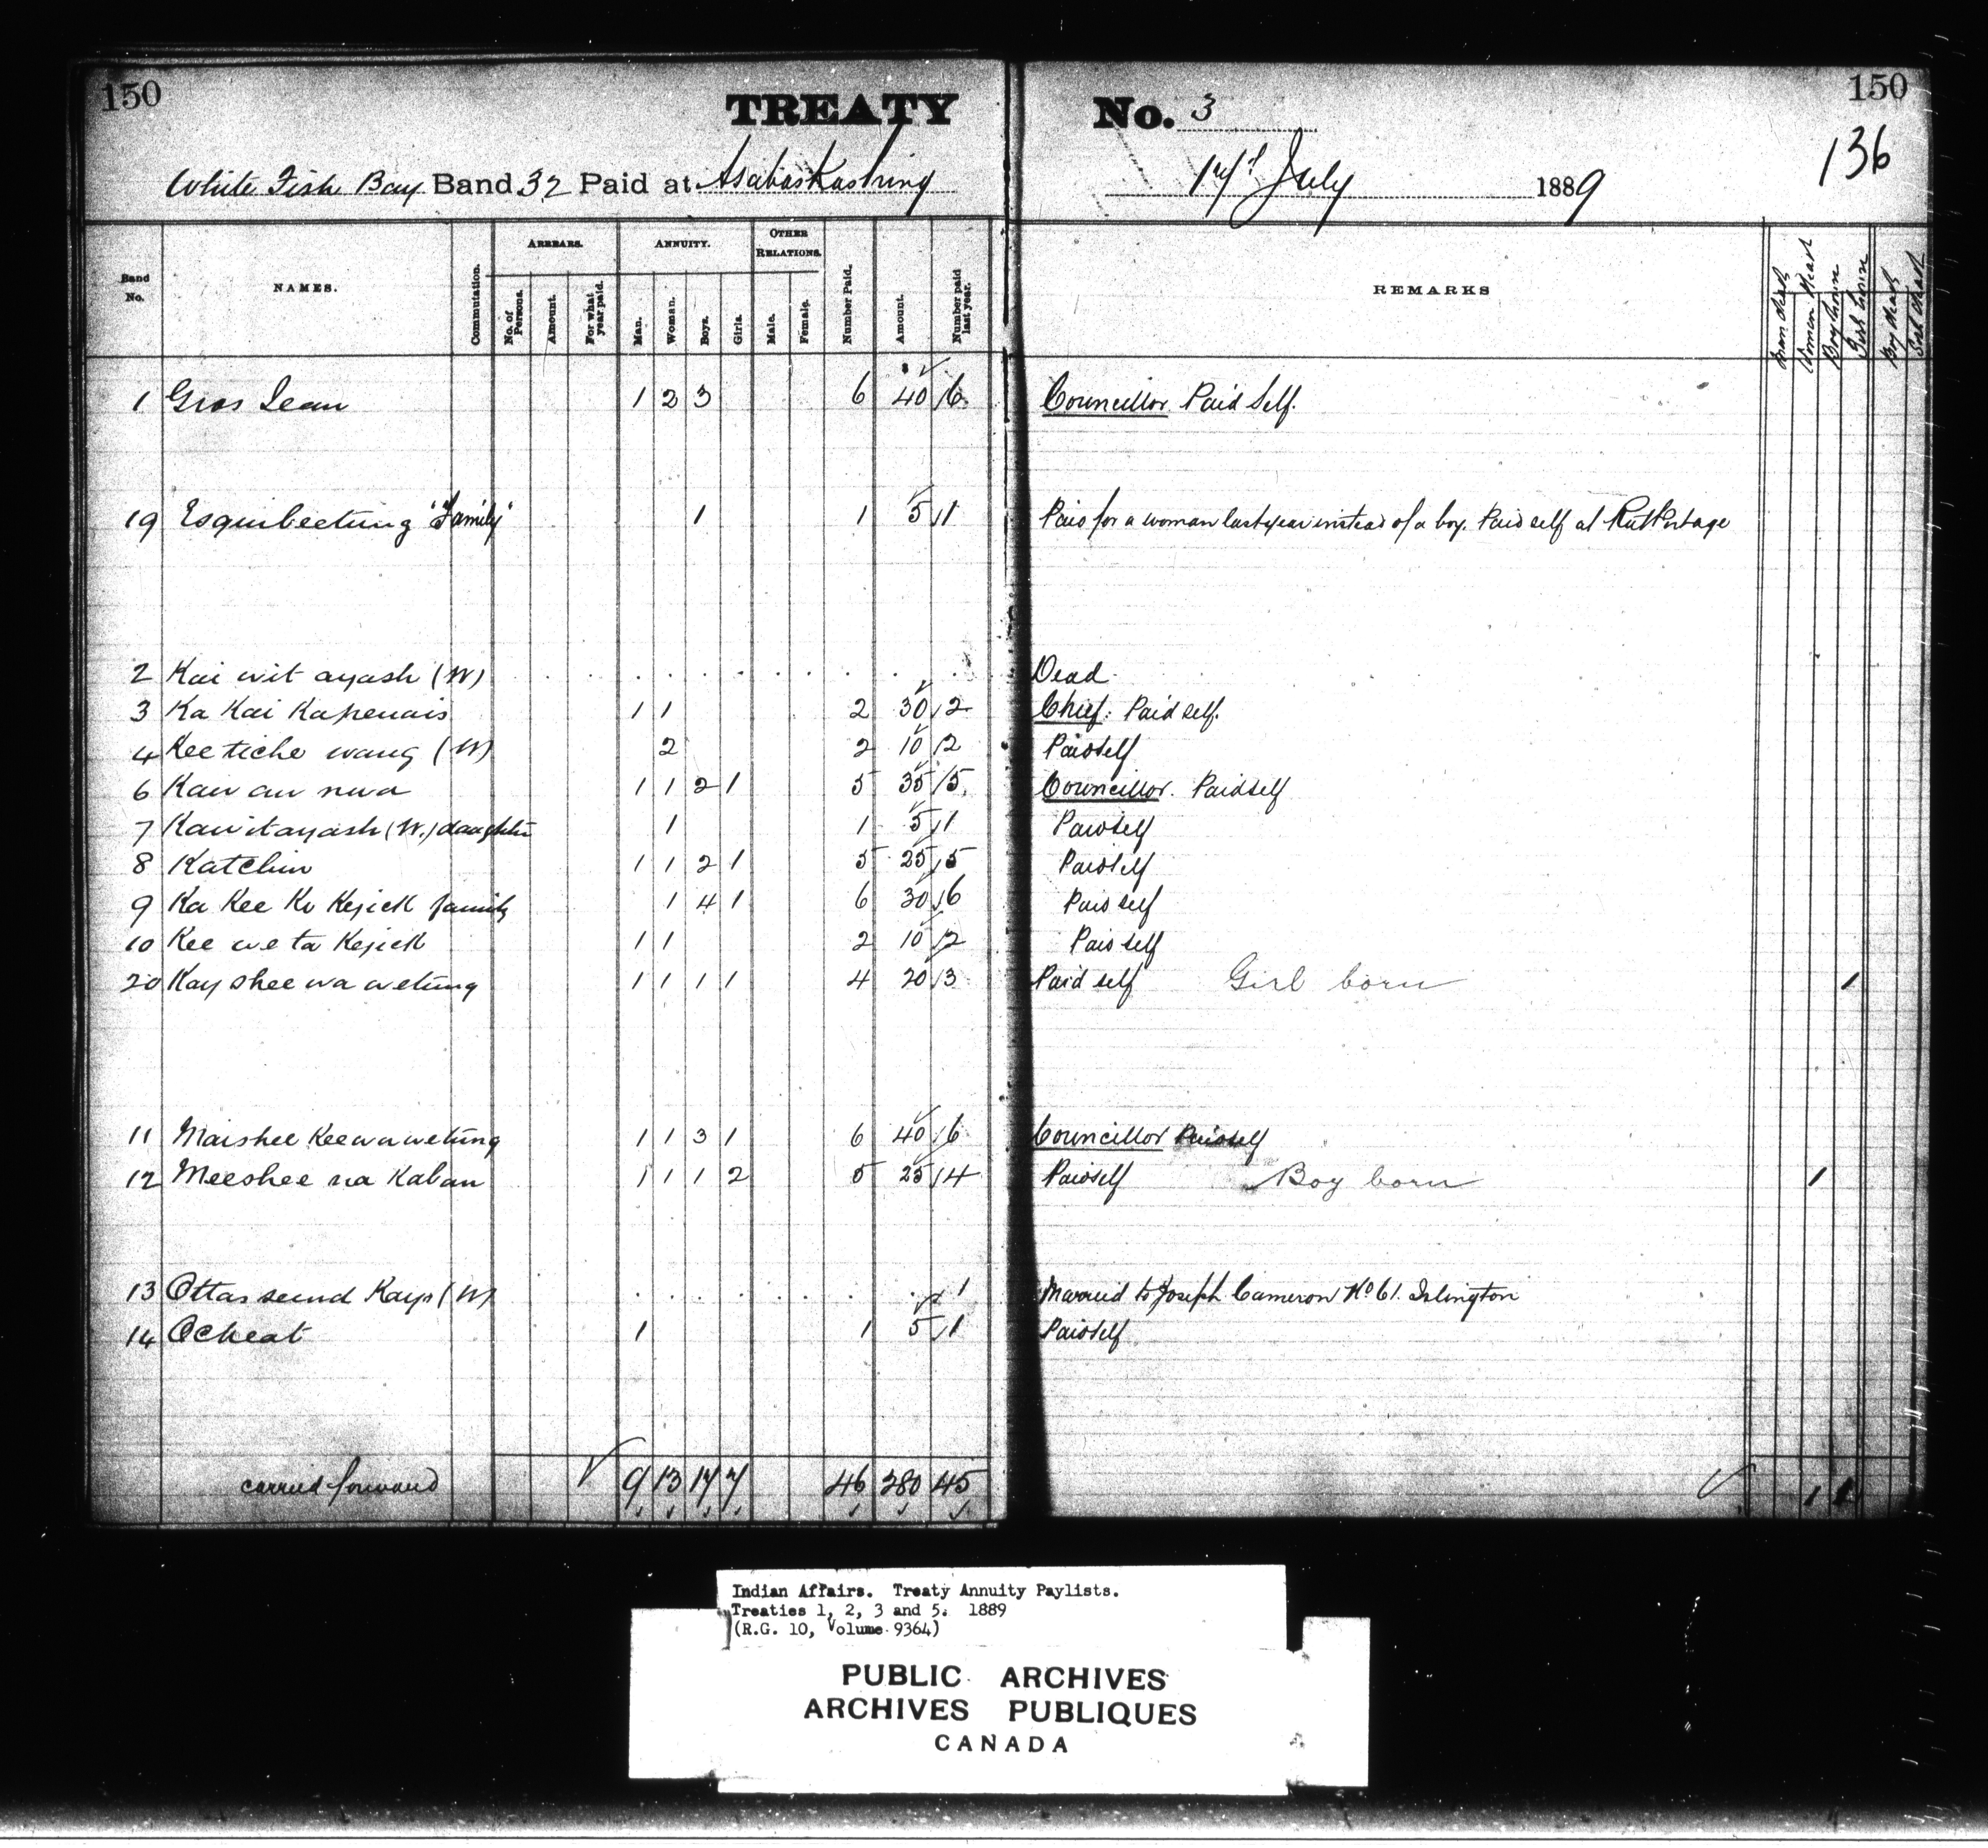 150 150
TREATY No. 3
136
White Fish Bay Band 32 Paid at Asabaskashing July 1889
Band No. NAMES. Commutation. ARREARS. No. of Persons. Amount. For what year paid. ANNUITY. Man. Woman. Boys. Girls. OTHER RELATIONS. Male. Female. Number Paid. Amount. Number paid last year. REMARKS Man dead Women dead Boy born Girl born Boy dead Girl dead
1 Gros Jean 1 2 3 6 40 6 Councillor Paid Self.
19 Esquibeetung "Family" 1 1 5 1 Paid for a woman last year instead of a boy. Paid self at Rat Portage
2 Kai wit ayash (W) Dead
3 Ka Kai Kapenais 1 1 2 30 2 Chief: Paid self.
4 Kee tiche wang (W) 2 2 10 2 Paid self
6 Kaw aw nwa 1 1 2 1 5 35 5 Councillor. Paid self
7 Kawitayash (W.) daughter 1 1 5 1 Paid self
8 Katchin 1 1 2 1 5 25 5 Paid self
9 Ka Kee Ko Kejick family 1 4 1 6 30 6 Paid self
10 Kee we ta Kejick 1 1 2 10 2 Paid self
20 Kay shee wa wetung 1 1 1 1 4 20 3 Paid self Girl born 1
11 Maishee Keewawetung 1 1 3 1 6 40 6 Councillor Paid self
12 Meeshee na Kaban 1 1 1 2 5 25 4 Paid self Boy born 1
13 Ottasseund Kaya (W) 1 Married to Joseph Cameron No 61. Islington
14 Ocheat 1 1 5 1 Paid self
carried forward 9 13 17 7 46 280 45 1 1
Indian Affairs. Treaty Annuity Paylists.
Treaties 1, 2, 3 and 5. 1889
(R.G. 10, Volume 9364)
PUBLIC ARCHIVES
ARCHIVES PUBLIQUES
CANADA